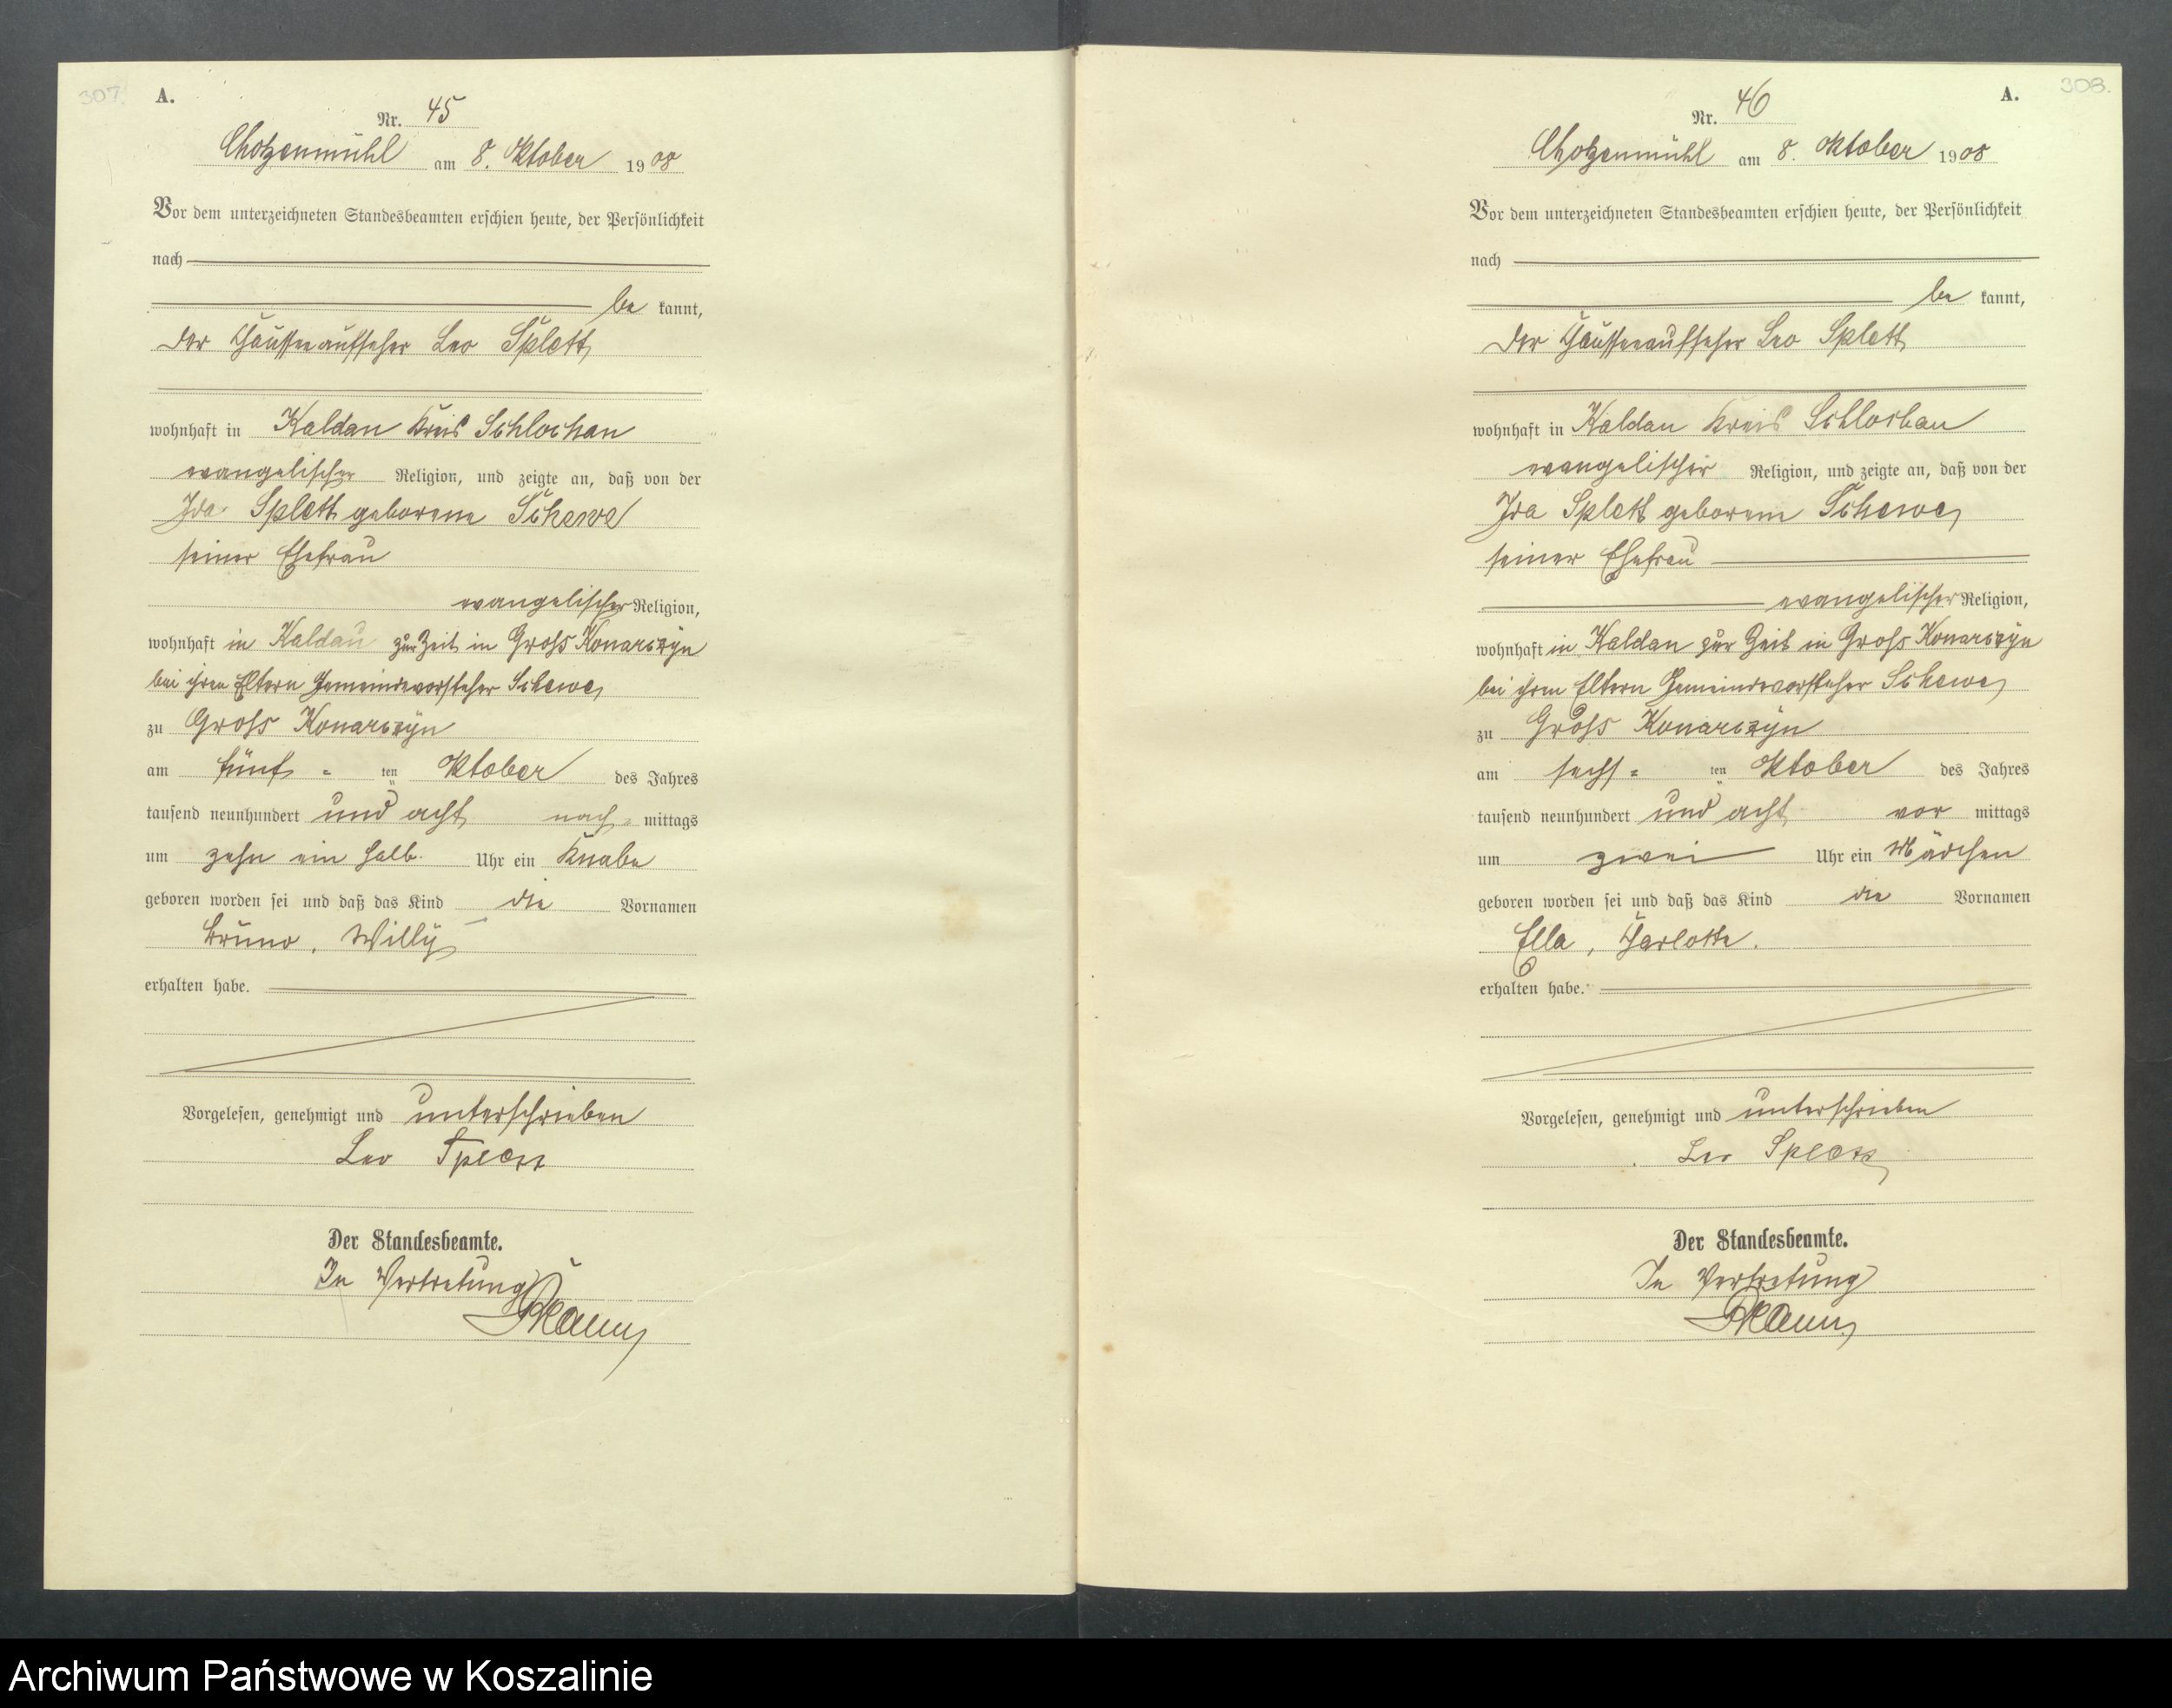 307.
A.
Nr. 45
Chotzenmühl am 8. Oktober 1908
Vor dem unterzeichneten Standesbeamten erschien heute, der Persönlichkeit
nach
be kannt,
der Chausseeaufseher Leo Splett,
wohnhaft in Kaldau Kreis Schlochau
evangelischer Religion, und zeigte an, daß von der
Ida Splett geborene Schewe
seiner Ehefrau
evangelischer Religion,
wohnhaft in Kaldau zur Zeit in Groß Konarczyn
bei ihren Eltern Gemeindevorsteher Schewe,
zu Groß Konarczyn
am fünf- ten Oktober des Jahres
tausend neunhundert und acht nach- mittags
um zehn ein halb Uhr ein Knabe
geboren worden sei und daß das Kind die Vornamen
Bruno, Willy
erhalten habe.
Vorgelesen, genehmigt und unterschrieben
Leo Splett
Der Standesbeamte.
In Vertretung
308.
A.
Nr. 46
Chotzenmühl am 8. Oktober 1908
Vor dem unterzeichneten Standesbeamten erschien heute, der Persönlichkeit
nach
be kannt,
der Chausseeaufseher Leo Splett
wohnhaft in Kaldau Kreis Schlochau
evangelischer Religion, und zeigte an, daß von der
Ida Splett geborene Schewe,
seiner Ehefrau
evangelischer Religion,
wohnhaft in Kaldau zur Zeit in Groß Konarczyn
bei ihren Eltern Gemeindevorsteher Schewe,
zu Groß Konarczyn
am sechs- ten Oktober des Jahres
tausend neunhundert und acht vor mittags
um zwei Uhr ein Mädchen
geboren worden sei und daß das Kind die Vornamen
Ella, Charlotte.
erhalten habe.
Vorgelesen, genehmigt und unterschrieben
Leo Splett
Der Standesbeamte.
In Vertretung
Archiwum Państwowe w Koszalinie